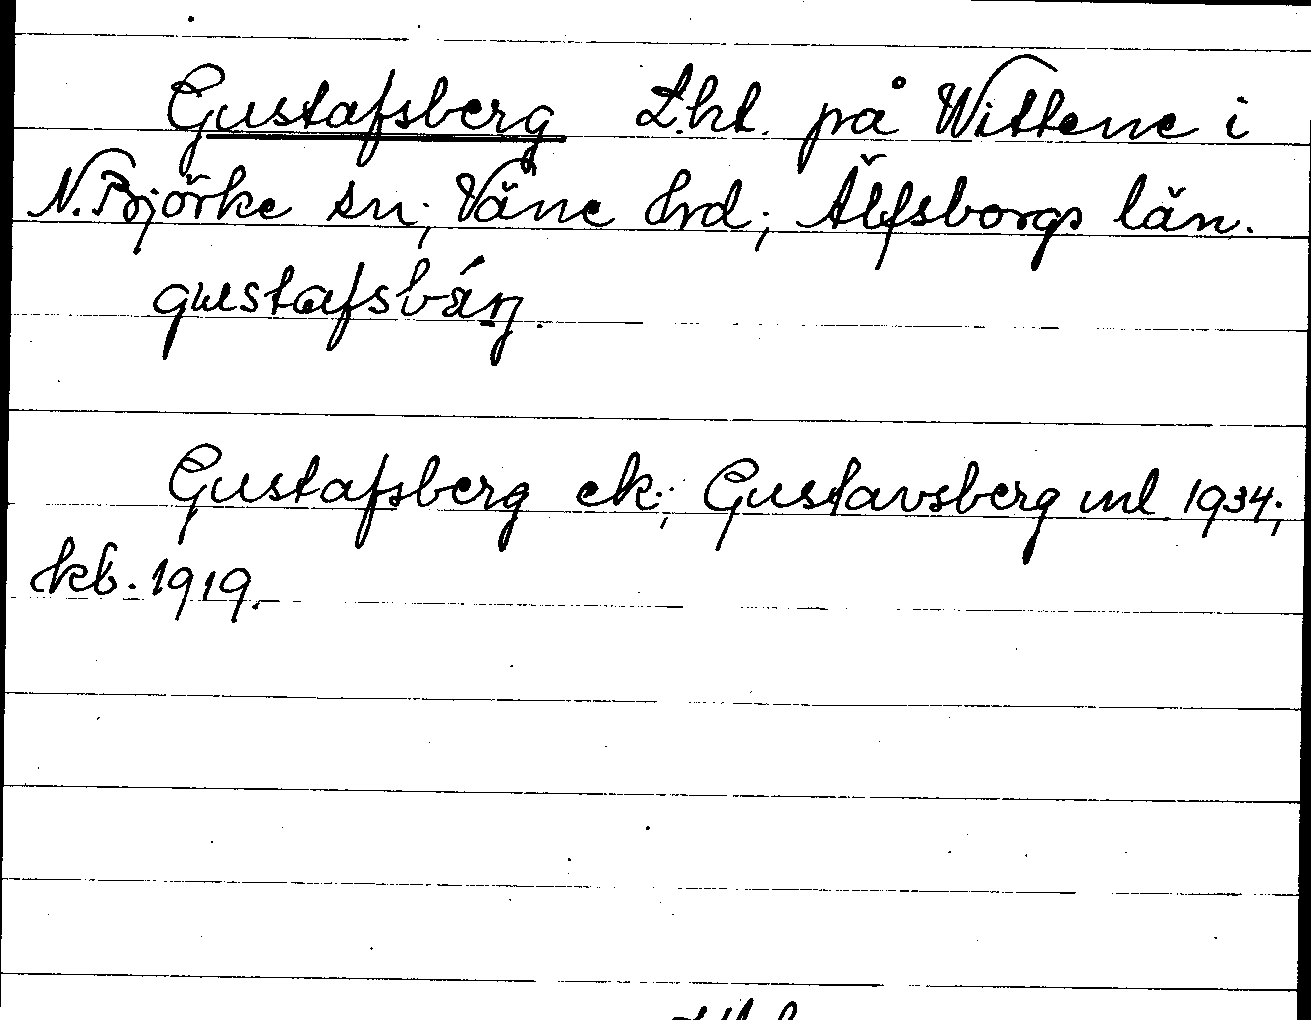 Gustafsberg L.ht. på Wittene i
N. Björke sn; Väne hrd; Älfsborgs län.
gustafsbárj.
Gustafsberg ek; Gustavsberg ml 1934;
kb. 1919.